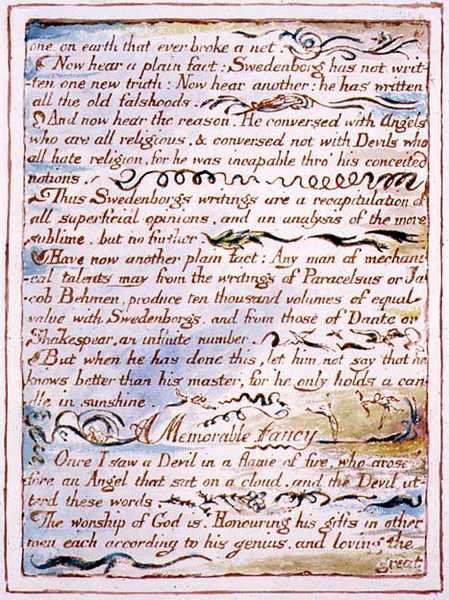 one on earth that ever broke a net.
Now hear a plain fact: Swedenborg has not writ-
ten one new truth: Now hear another: he has written
all the old falshoods.
And now hear the reason. He conversed with Angels
who are all religious, & conversed not with Devils who
all hate religion, for he was incapable thro' his conceited
notions.
Thus Swedenborgs writings are a recapitulation of
all superficial opinions, and an analysis of the more
sublime, but no further.
Have now another plain fact: Any man of mechani-
cal talents may from the writings of Paracelsus or Ja-
cob Behmen, produce ten thousand volumes of equal
value with Swedenborgs. and from those of Dante or
Shakespear, an infinite number.
But when he has done this, let him not say that he
knows better than his master, for he only holds a can-
dle in sunshine.
A Memorable Fancy
Once I saw a Devil in a flame of fire, who arose be-
fore an Angel that sat on a cloud, and the Devil ut-
terd these words.
The worship of God is, Honouring his gifts in other
men each according to his genius. and loving the
great